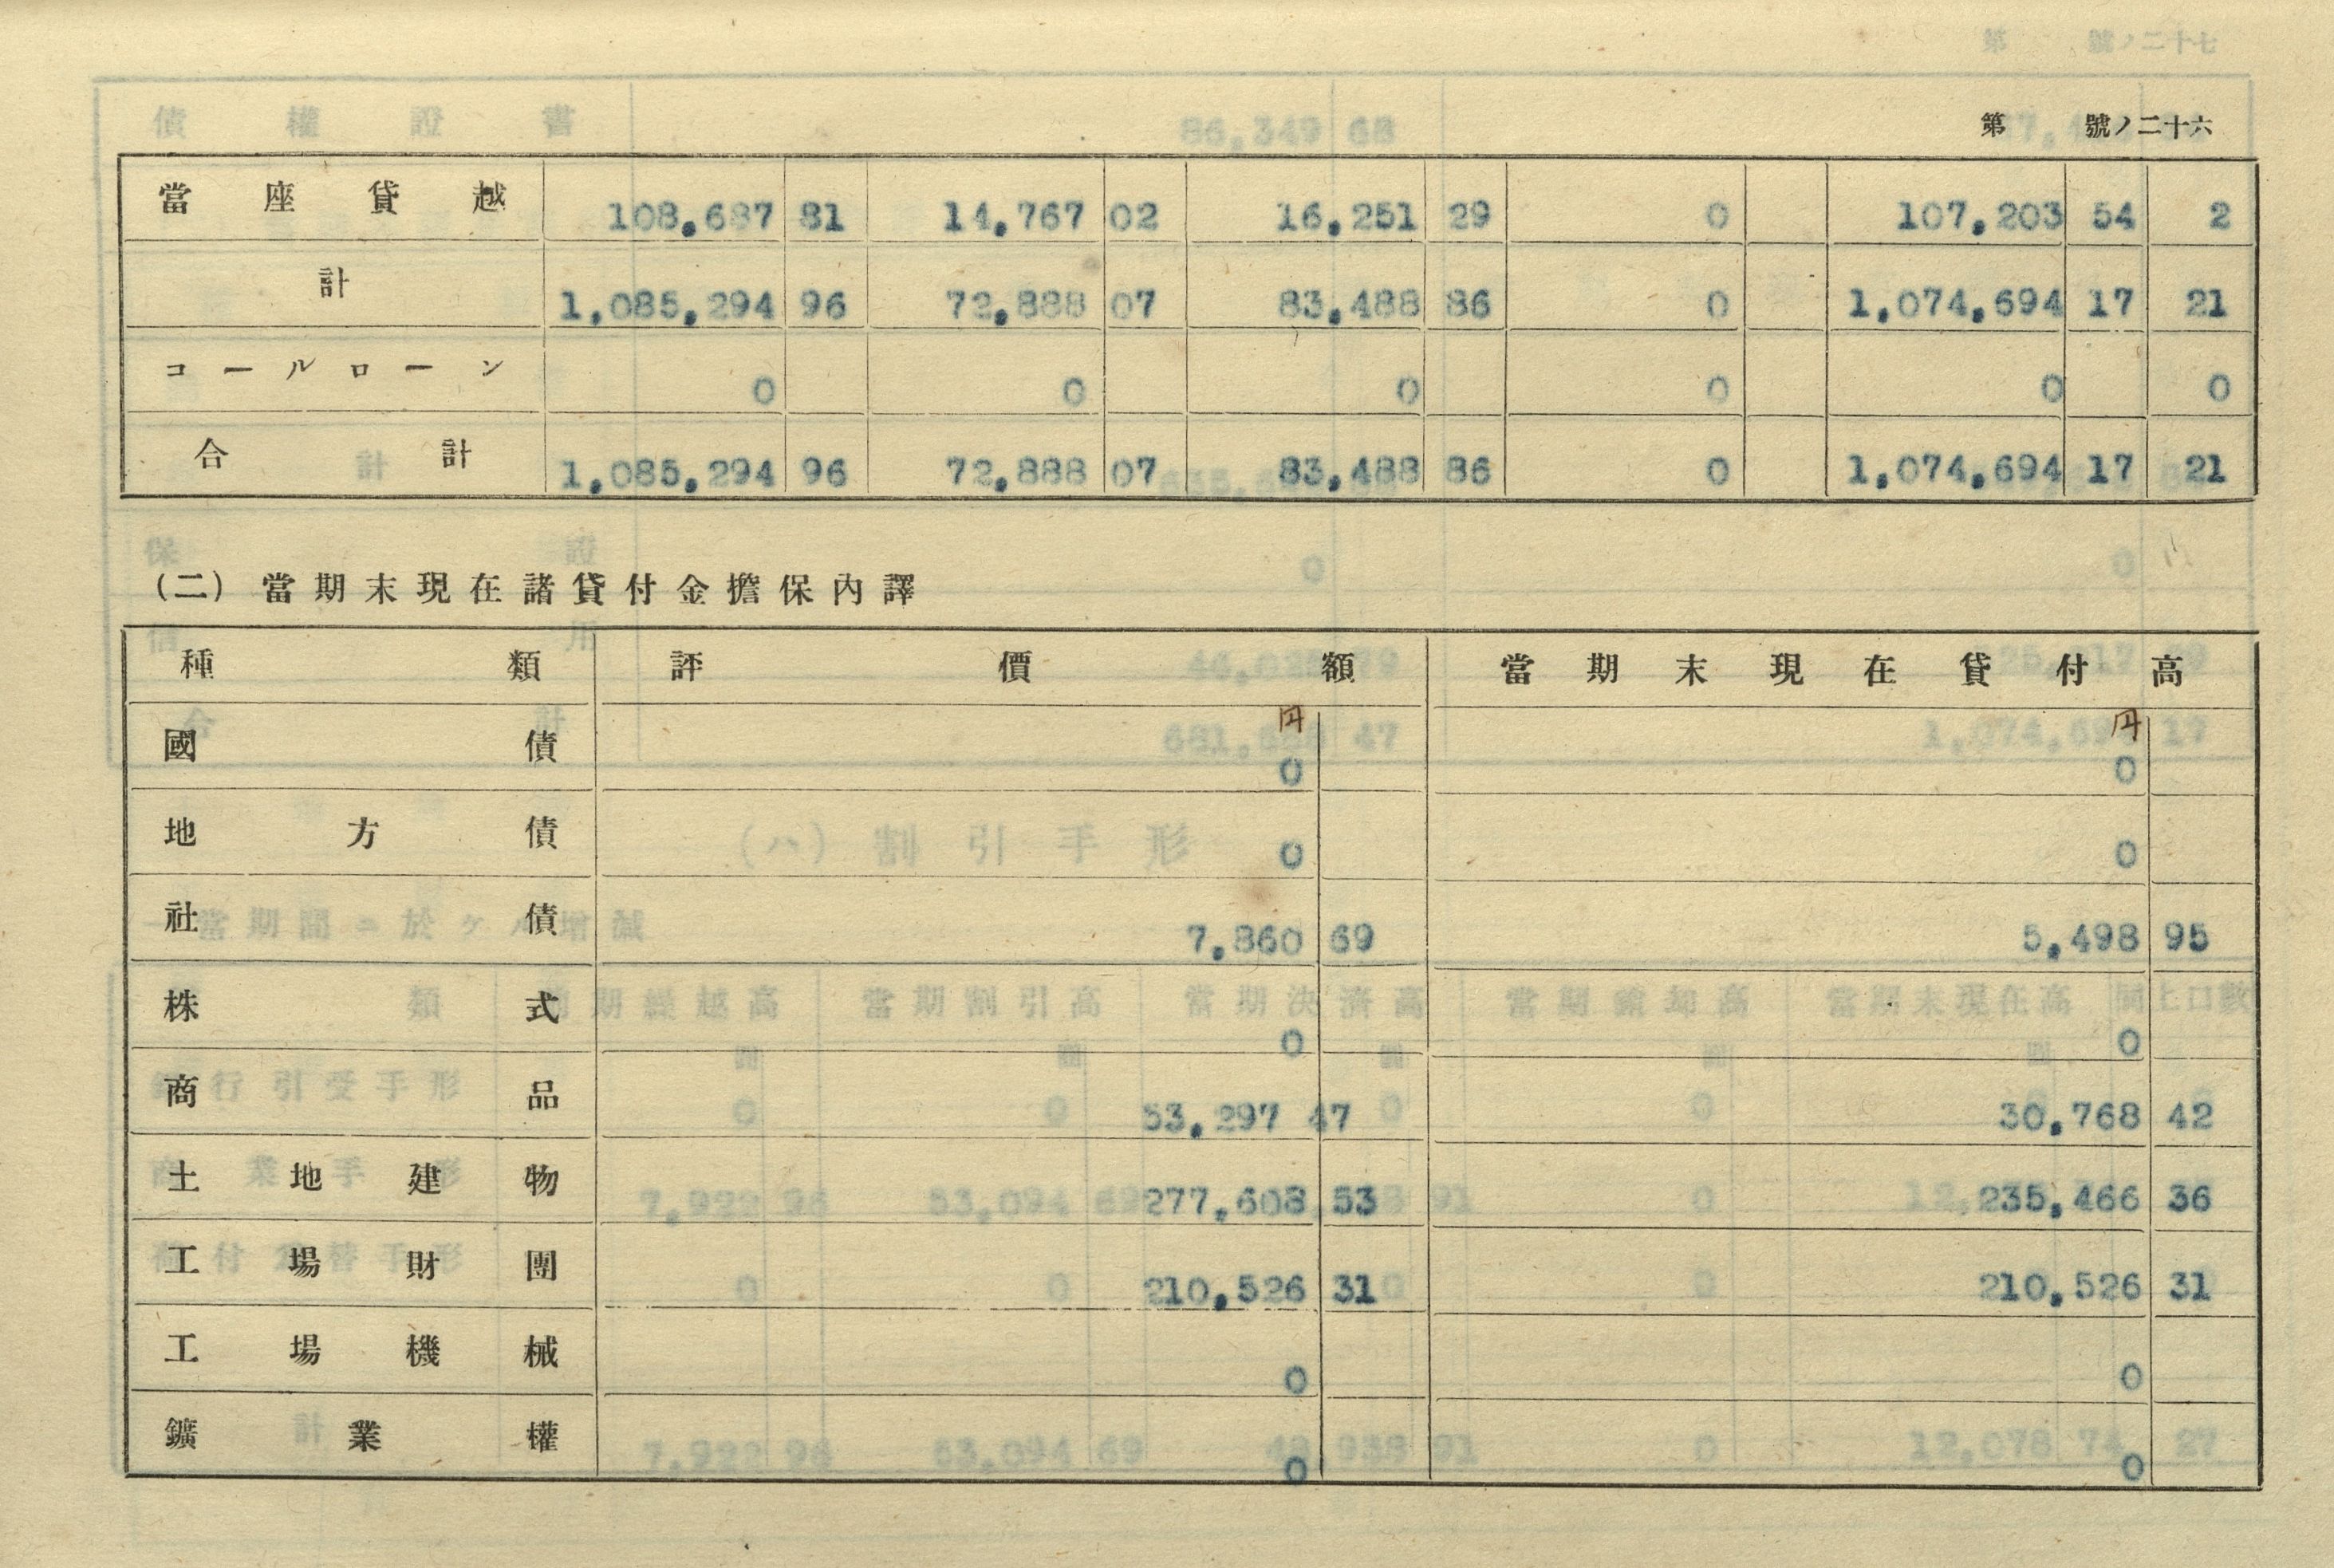 第 號ノ二十六
當座貸越 108,687 81 14,767 02 16,251 29 0 107,203 54 2
計 1,085,294 96 72,888 07 83,488 86 0 1,074,694 17 21
コールローン 0 0 0 0 0 0
合計 1,085,294 96 72,888 07 83,488 86 0 1,074,694 17 21
(二) 當期末現在諸貸付金擔保內譯
種類 評價額 當期末現在貸付高
円 円
國債 0 0
地方債 0 0
社債 7,860 69 5,498 95
株式 0 0
商品 53,297 47 30,768 42
土地建物 277,608 53 235,466 36
工場財團 210,526 31 210,526 31
工場機械 0 0
鑛業權 0 0